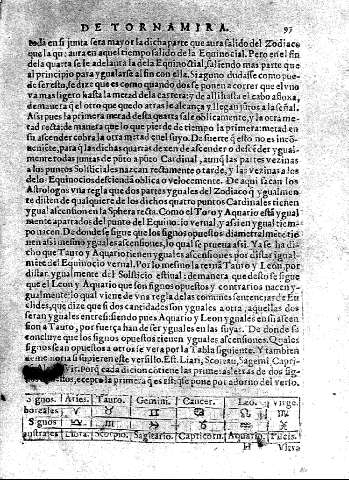 DE TORNAMIRA. 97
toda en si junta sera mayor la dicha parte que aura salido del Zodiaco
que la q̃ aura en aquel tiempo salido de la Equinocial. Pero en el fin
dela quarta se le adelanta la dela Equinoctial, saliendo mas parte que
al principio para ygualarse al fin con ella. Si alguno dudasse como pue-
de ser esto, se dize que es como quando dos se ponen a correr que el vno
va mas ligero hasta la metad dela carrera; y de alli hasta el cabo afloxa,
demanera q̃ el otro que quedo atras le alcança y llegan jũtos a la señal.
Assi pues la primera metad desta quarta sale obliquamente, y la otra me-
tad recta: de manera que lo que pierde de tiempo la primera metad en
su ascender cobra la otra metad en el suyo. De suerte q̃ esto no es incon-
ueniẽte, para q̃ las dichas quartas dexen de ascender o descẽder ygual-
mente todas juntas de pũto a pũto Cardinal, aunq̃ las partes vezinas
a los puntos Solsticiales nazcan rectamente o tarde, y las vezinas a los
delo Equinocios desciẽdã oblica o velocemente. De aqui sacan los
Astrologos vna regla que dos partes yguales del Zodiaco q̃ ygualmẽ-
te disten de qualquiere de los dichos quatro puntos Cardinales tienen
ygual ascension en la Sphera recta. Como el Toro y Aquario estã ygual
mente apartados del punto del Equinocio vernal, y assi en ygual tiem-
po nacen. De donde se sigue que los signos opuestos diametralmẽte tie
nen assi mesmo yguales ascensiones, lo qual se prueua assi. Ya se ha di-
cho que Tauro y Aquario tienen yguales ascensiones por distar ygual-
mẽte del Equinocio vernal. Por lo mesmo la ternã Tauro y Leon, por
distar ygualmente del Solsticio estiual: demanera que desto se sigue
que el Leon y Aquario que son signos opuestos y contrarios nacen y-
gualmente: lo qual viene de vna regla de las comunes sentencias de Eu
clides, que dize que si dos cantidades son yguales a otra, aquellas dos
seran yguales entresi: siendo pues Aquario y Leon yguales en su ascen
sion a Tauro, por fuerça han de ser yguales en las suyas. De donde se
concluye que los signos opuestos tienen yguales ascensiones. Quales
signos sean opuestos a otros se vera por la Tabla siguiente. Y tambien
se tiene noticia si supieren este versillo. Est. Liari, Scotau, Sagemi Capri-
Vir. Porq̃ cada dicion cõtiene las primeras letras de dos sig-
nos opuestos, ecepto la primera q̃ es Est: que se pone por adorno del verso.
Signos. Aries. Tauro. Gemini. Cancer. Leo. Virgo.
boreales ♈ ♉ ♊ ♋ ♌ ♍
Signos ♎ ♏ ♐ ♑ ♒ ♓
australes Libra. Scorpio. Sagitario. Capricorn. Aquario. Piscis.
H Vltra